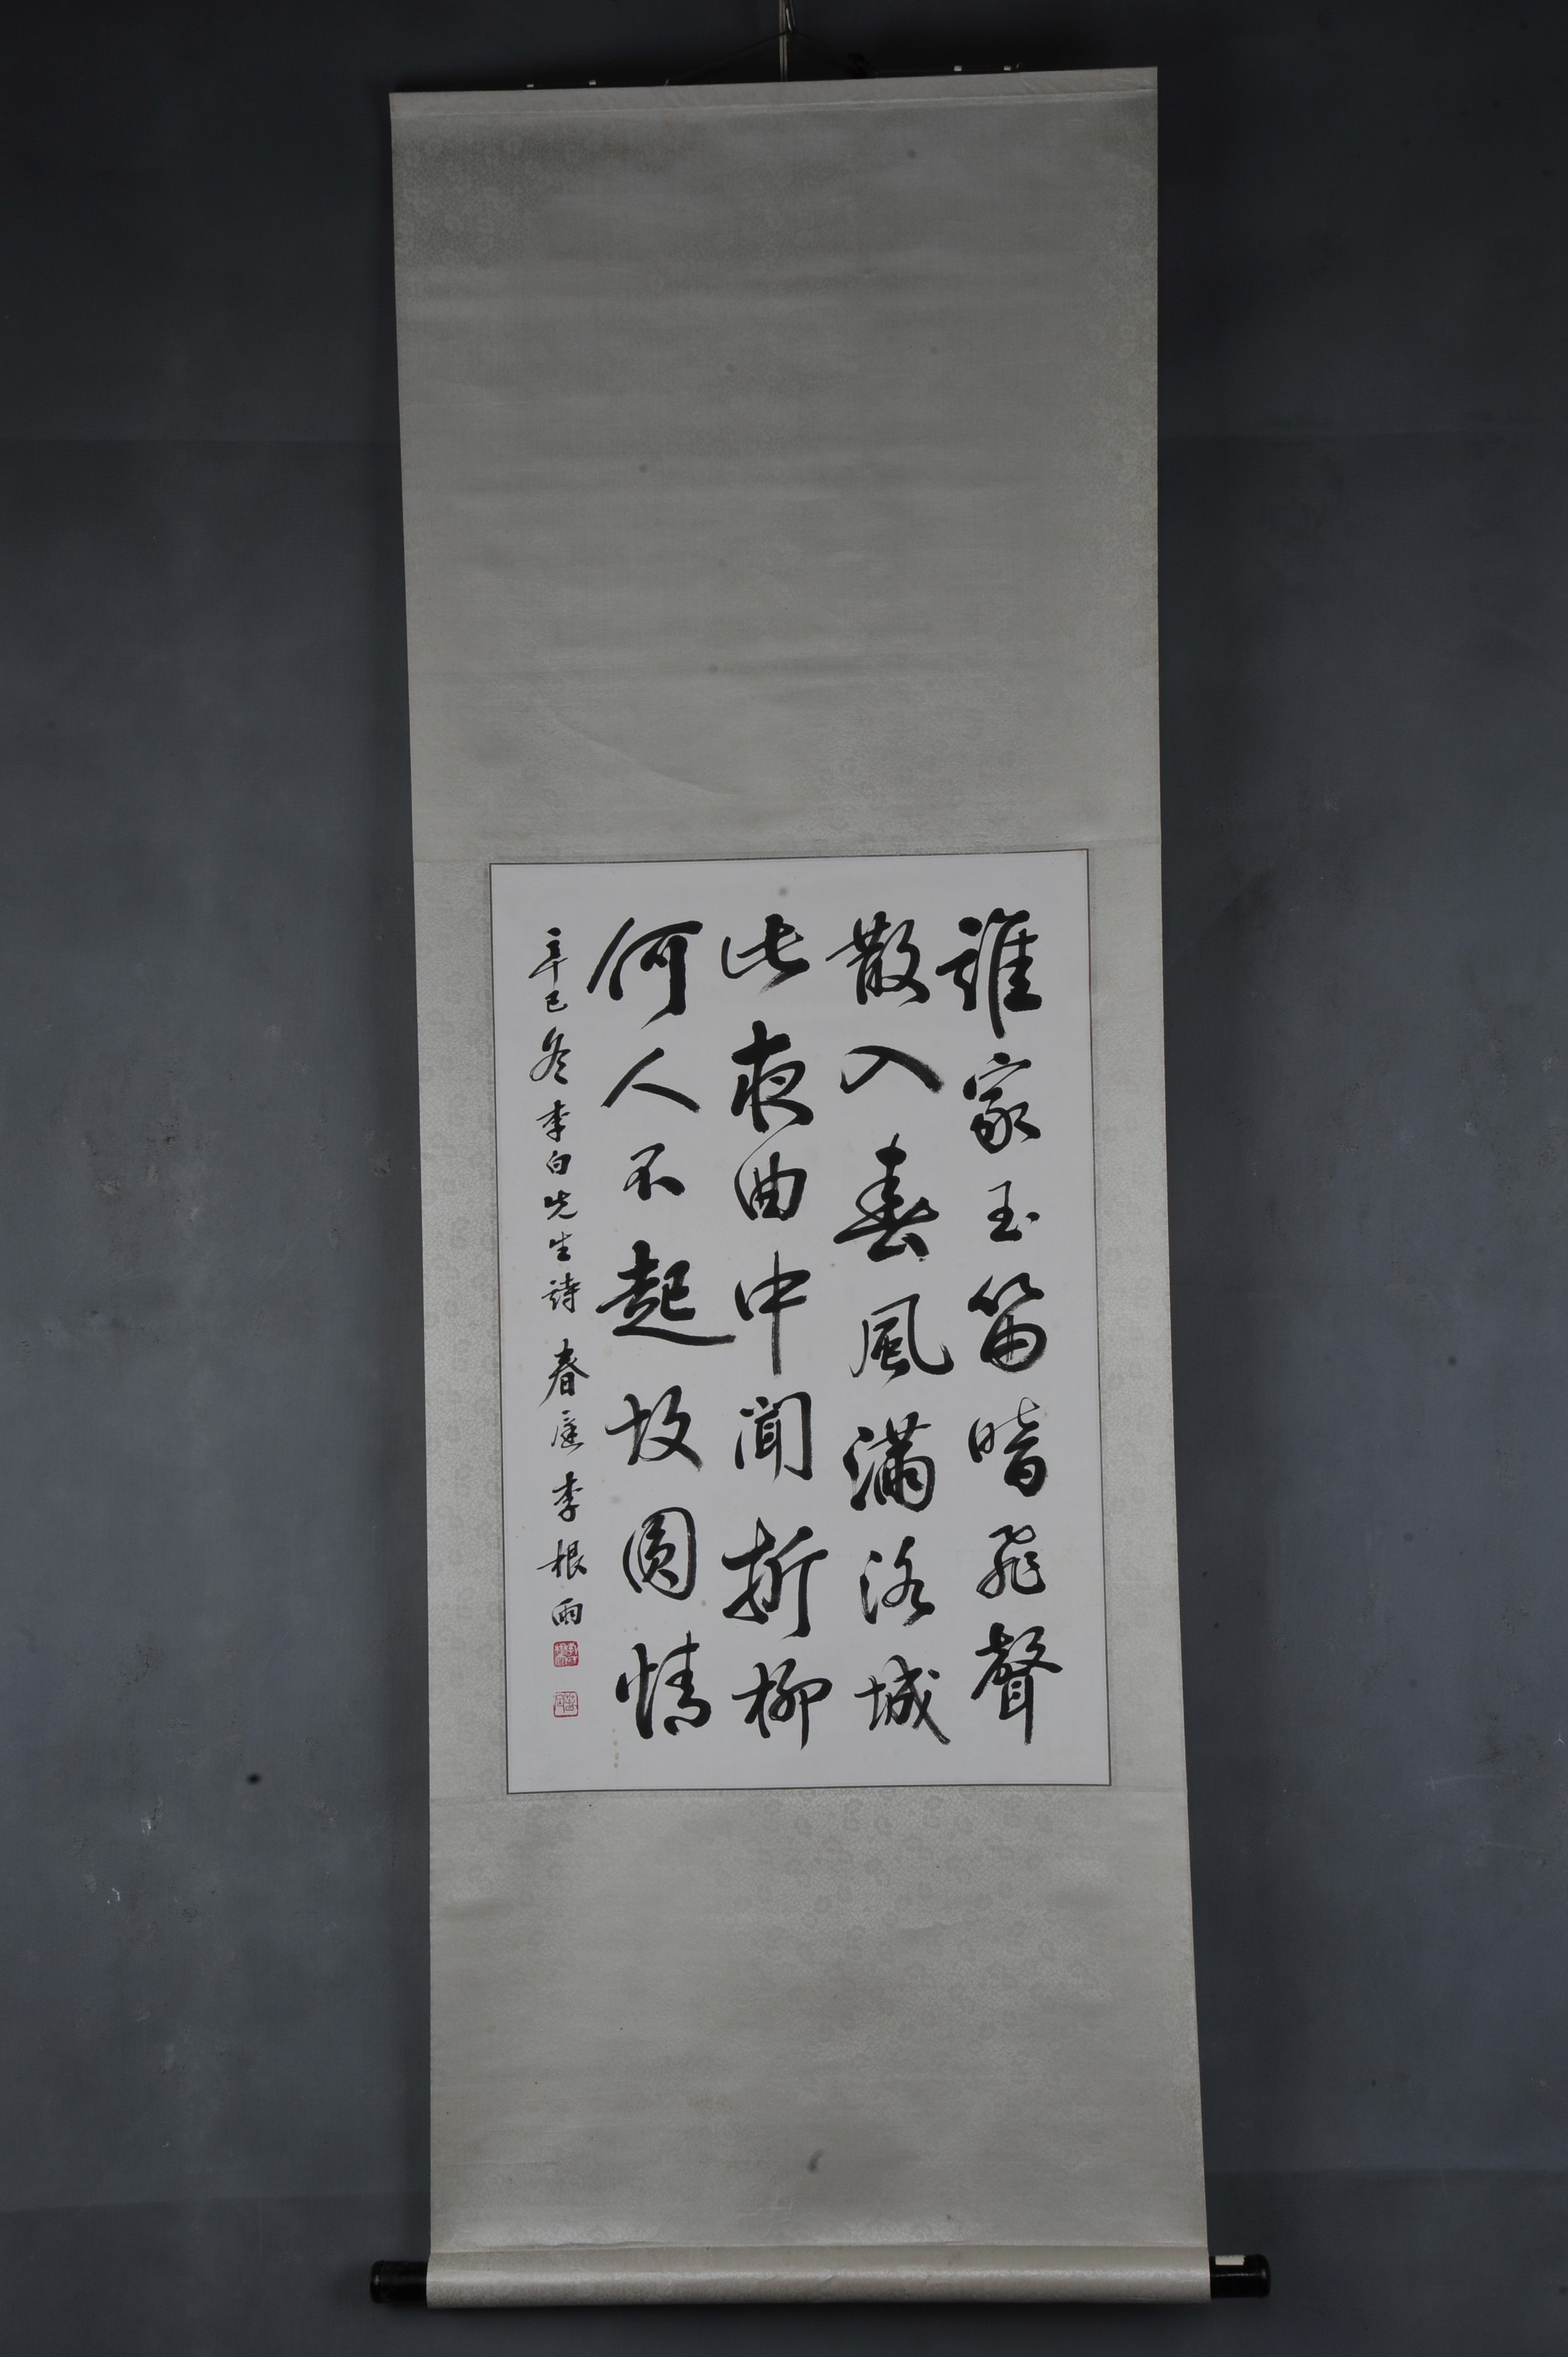 誰家玉笛暗飛聲
散入春風滿洛城
此夜曲中聞折柳
何人不起故園情
辛巳冬李白先生詩春庭李根雨